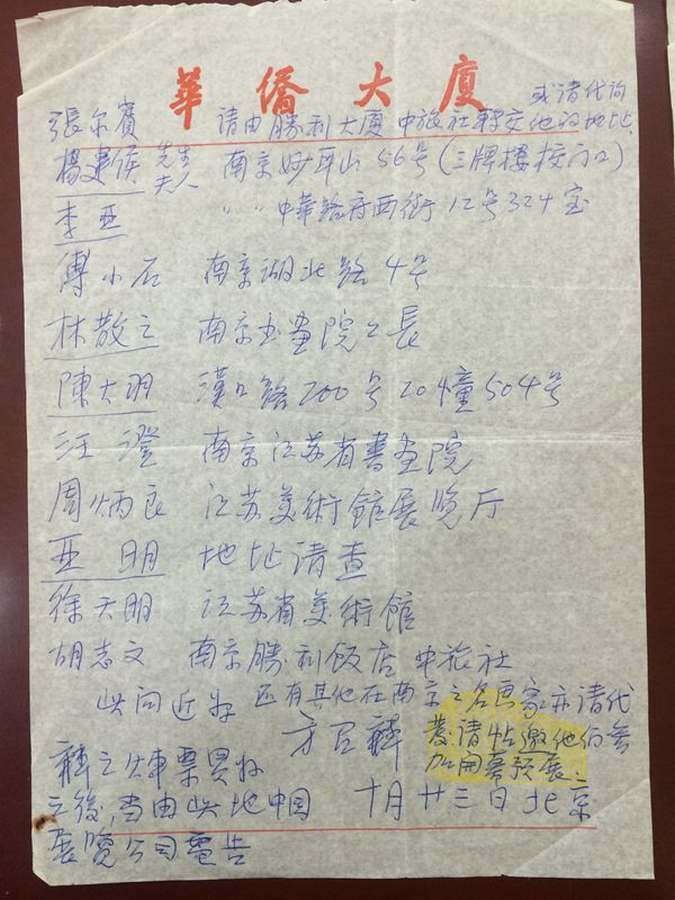 華僑大廈
或請代询
張尔賓 请由勝利大廈中旅社轉交他的地址
楊建侯 先生 夫人 南京妙耳山56号(三牌樓校门口)
李亚 〃 〃 中華路府西街12号324室
傅小石 南京湖北路4号
林散之 南京书画院之長
陳大羽 漢口路200号20幢504号
汪澄 南京江苏省書画院
周炳良 江苏美術館展览厅
亚明 地址请查
徐天明 江苏省美術館
胡志文 南京勝利飯店中旅社
此问近好 还有其他在南京之名画家亦请代
方召麐 發请帖邀他们参
加開幕预展。
麐之火車票買好
之後,当由此地中国 十月廿三日北京
展覽公司電告